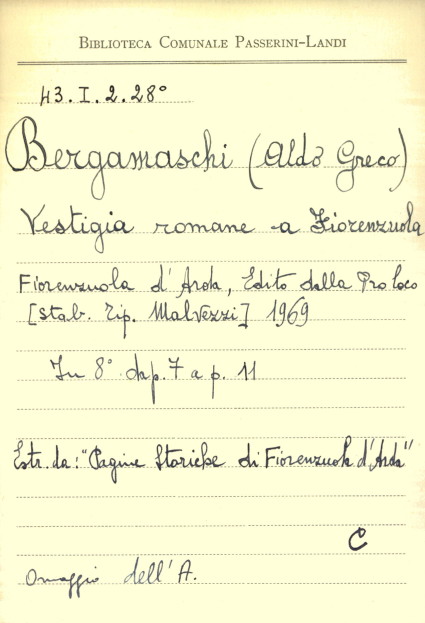 BIBLIOTECA COMUNALE PASSERINI-LANDI
43.I.2.28°
Bergamaschi (Aldo Greco)
Vestigia romane a Fiorenzuola
Fiorenzuola d'Arda, Edito dalla Pro loco
[Stab. Tip. Malvezzi] 1969
In 8° da p. 7 a p. 11
Estr. da: "Pagine Storiche di Fiorenzuola d'Arda"
C
Omaggio dell'A.